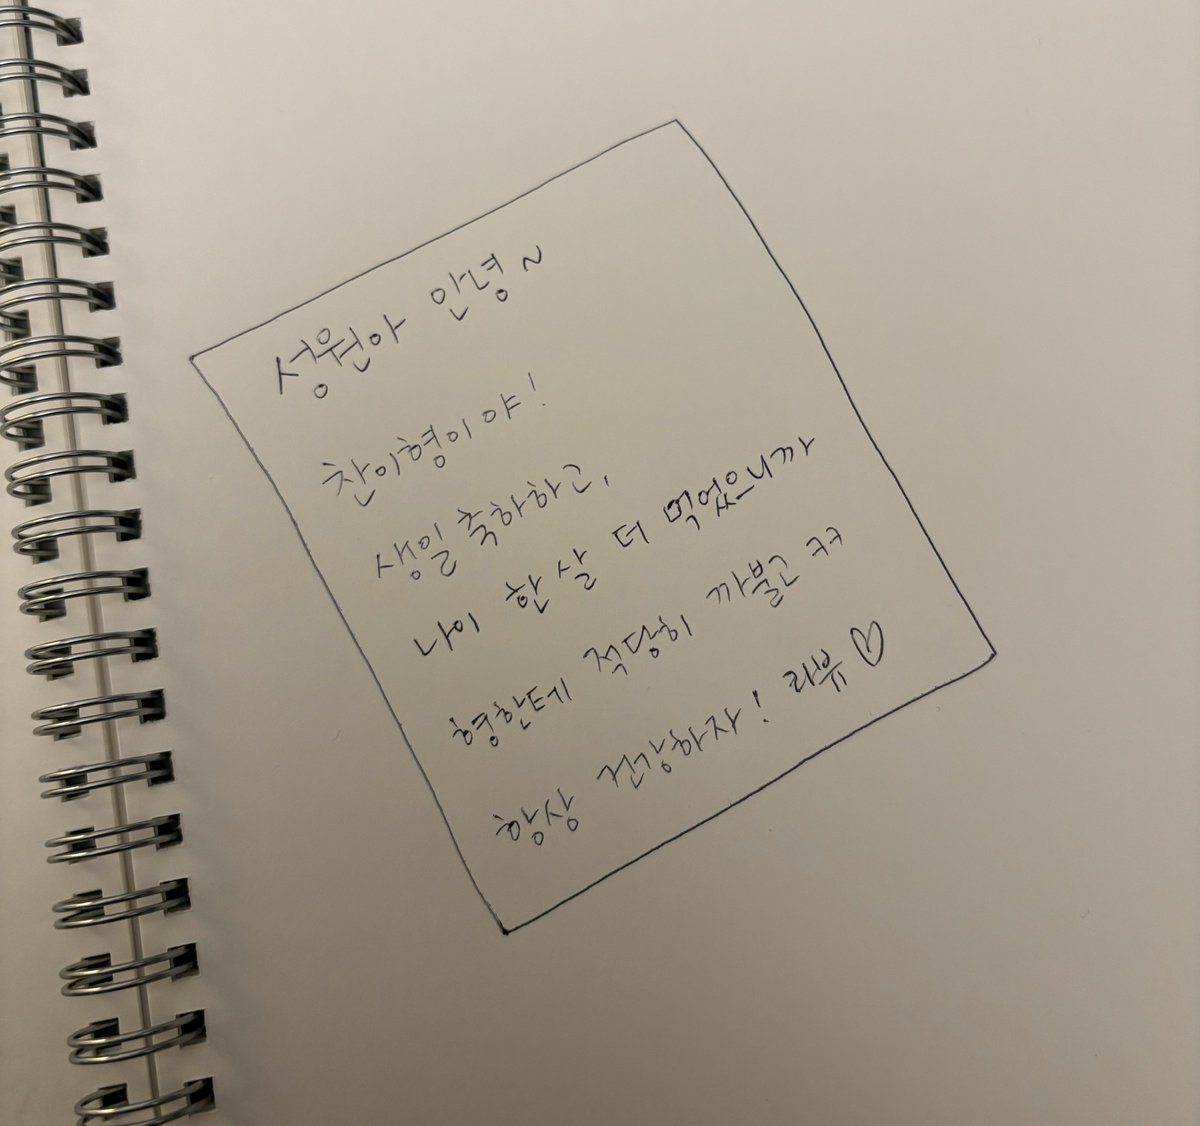 성원아 안녕~
찬이형이야!
생일 축하하고,
나이 한 살 더 먹었으니까
형한테 적당히 까불고 ㅋㅋ
항상 건강하자! 라뷰♡